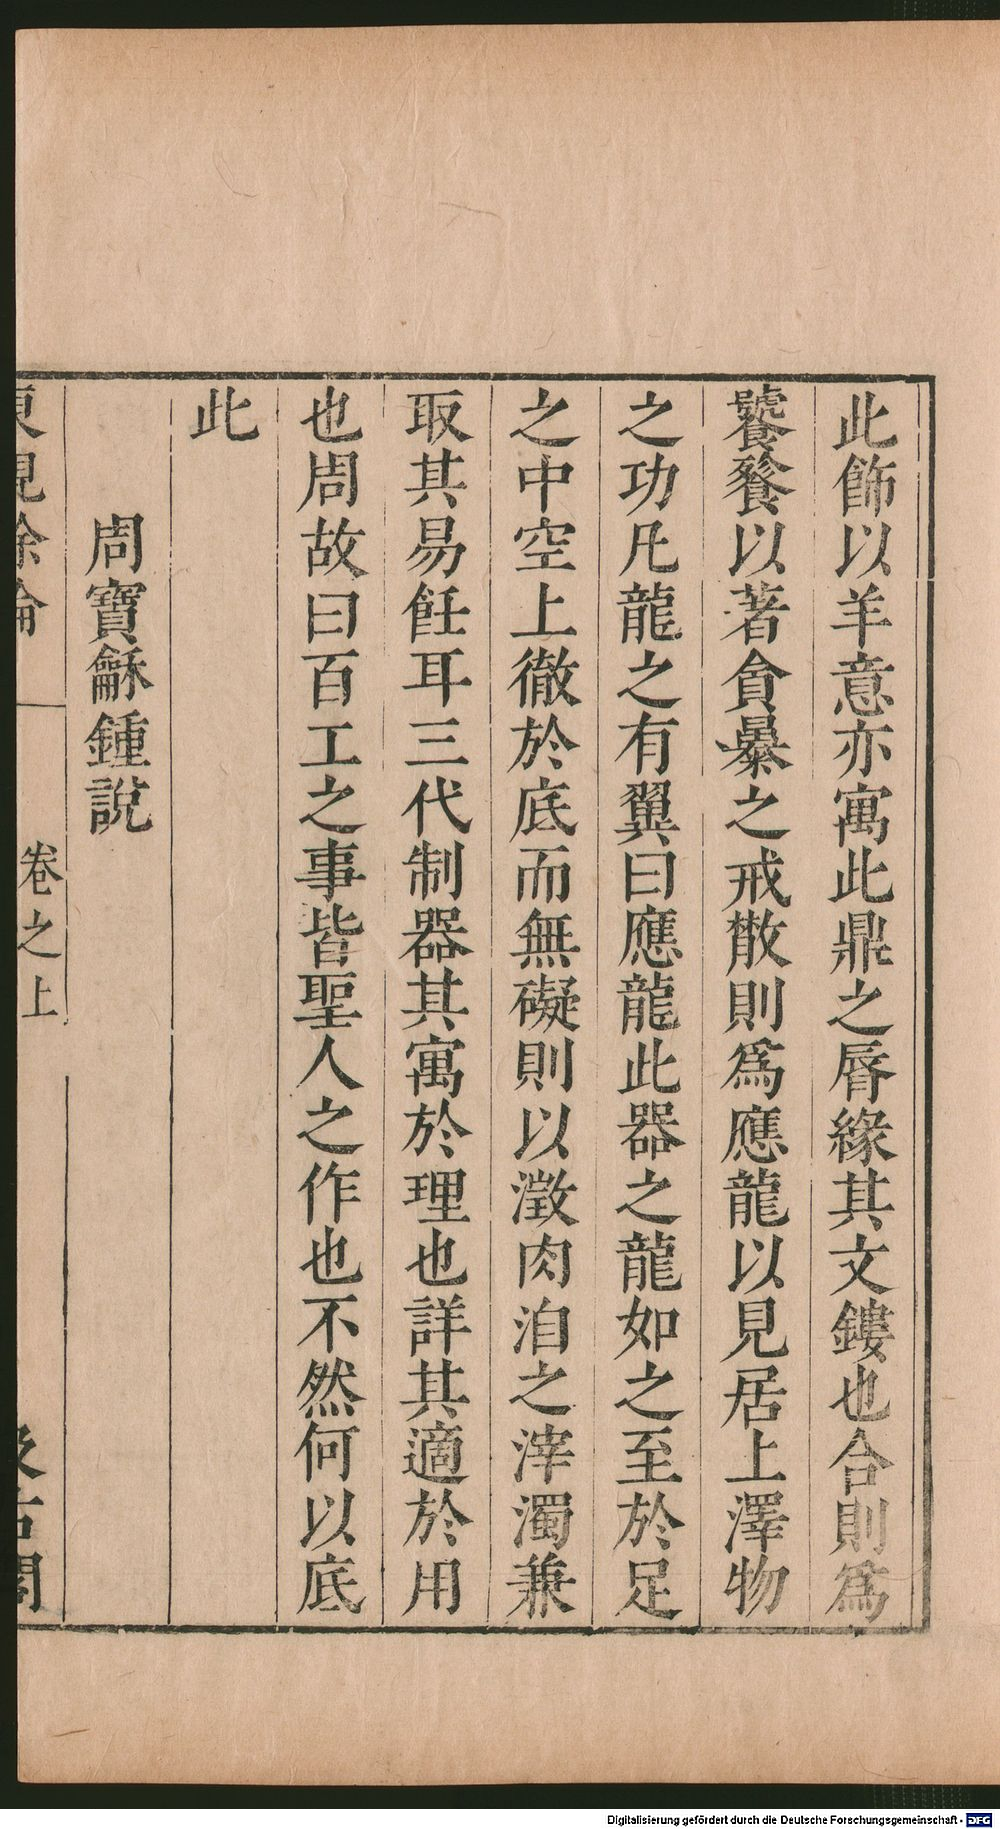 此飾以羊意亦寓此鼎之脣緣其文鏤也合則爲
饕餮以著貪㬥之戒散則爲應龍以見居上澤物
之功凡龍之有翼曰應龍此器之龍如之至於足
之中空上徹於底而無礙則以澂肉洎之滓濁兼
取其易飪耳三代制器其寓於理也詳其適於用
也周故曰百工之事皆聖人之作也不然何以底
此
周寶龢鍾說
東觀餘論
卷之上
汲古閣
Digitalisierung gefördert durch die Deutsche Forschungsgemeinschaft - DFG